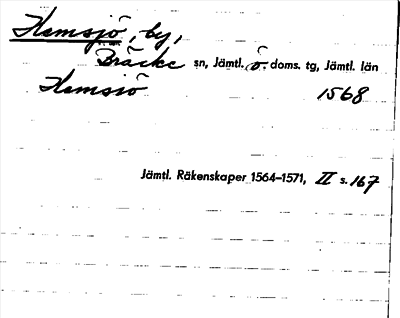 Hemsjö, by,
Bräcke sn, Jämtl. ö. doms. tg, Jämtl. län
Hemsiö 1568
Jämtl. Räkenskaper 1564–1571, II s. 167